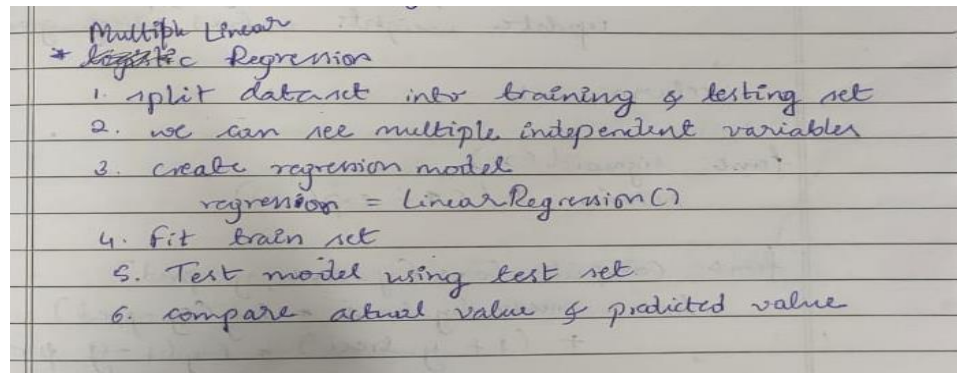 Multiple Linear
* Regression
1. split dataset into training & testing set
2. we can see multiple independent variables
3. create regression model
regression = LinearRegression()
4. Fit train set
5. Test model using test set
6. compare actual value & predicted value